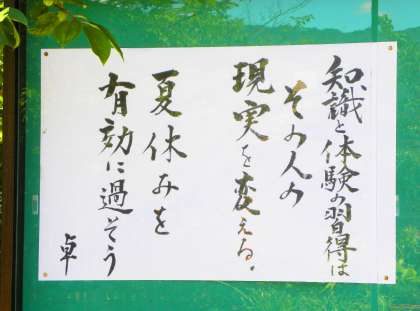 知識と体験の習得は
その人の
現実を変える。
夏休みを
有効に過そう
卓